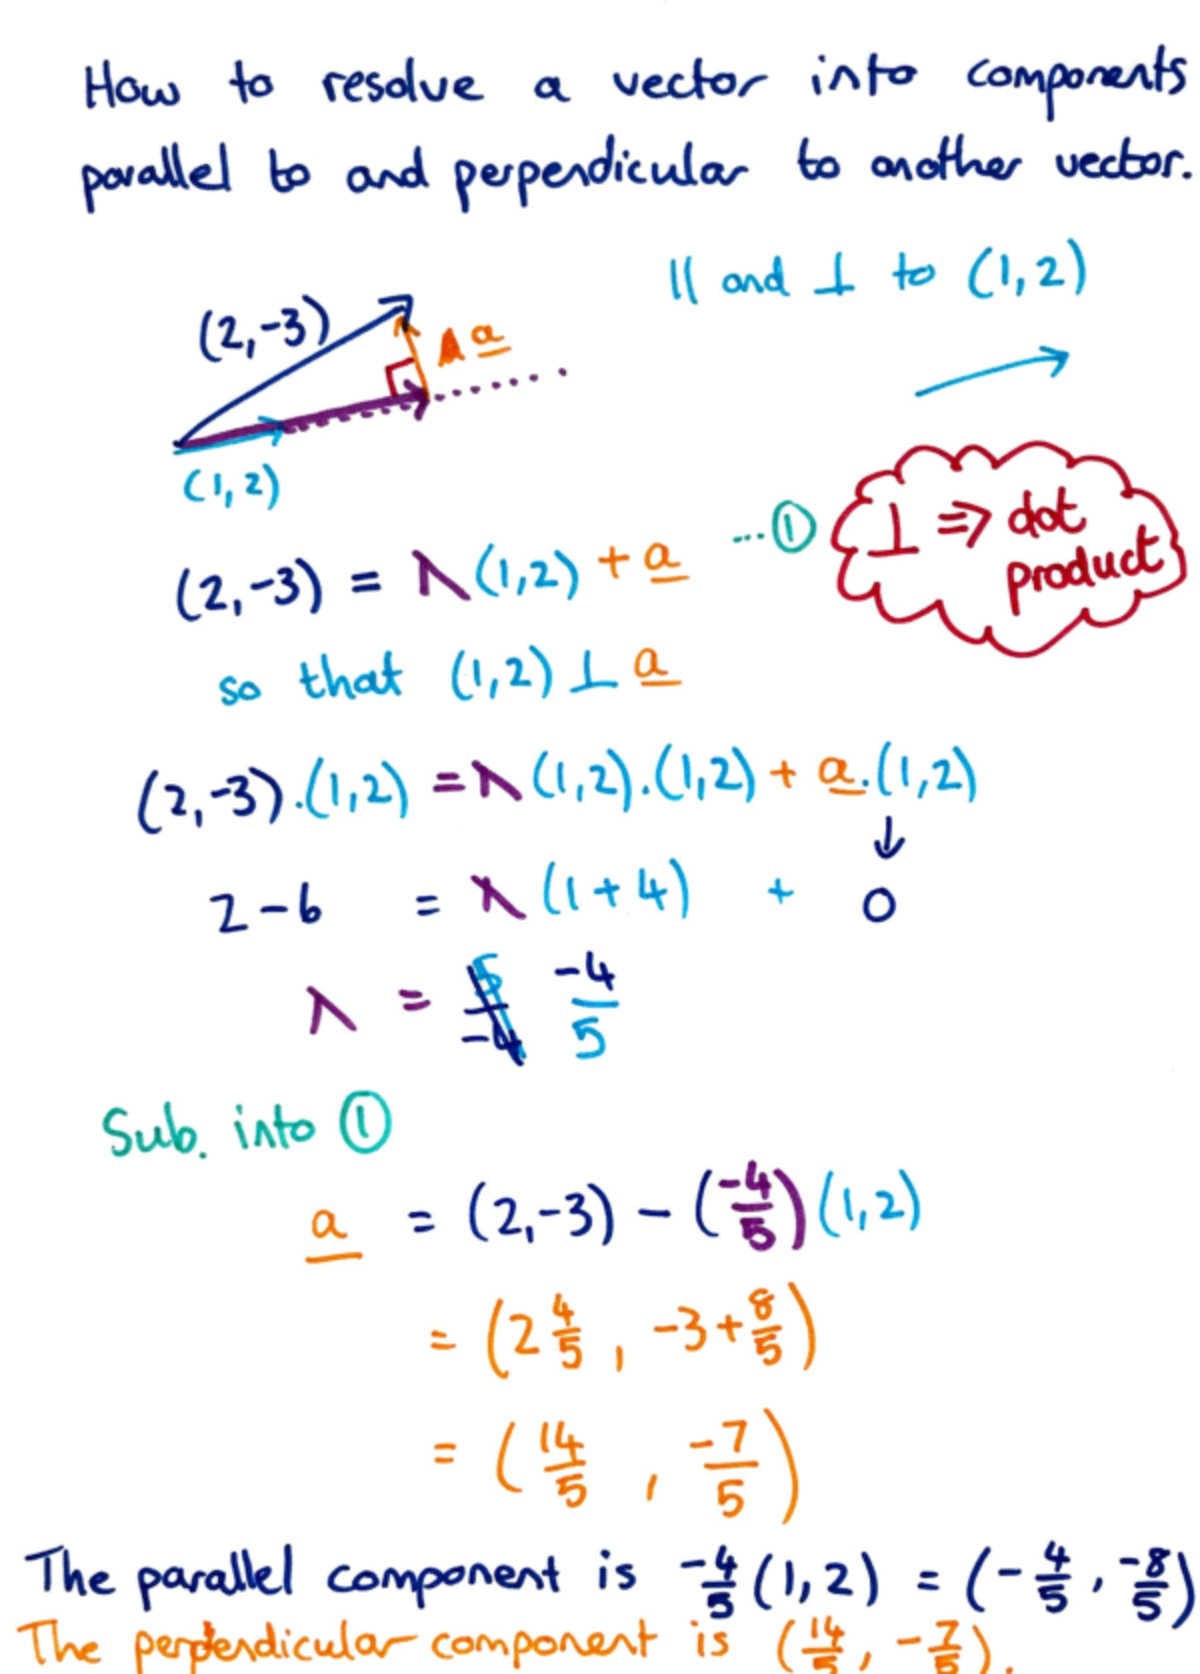 How to resolve a vector into components
parallel to and perpendicular to another vector.
|| and ⊥ to (1,2)
(2,-3)
a
(1,2)
⊥ ⇒ dot
product
(2,-3) = λ(1,2) + a ...①
so that (1,2) ⊥ a
(2,-3).(1,2) = λ(1,2).(1,2) + a.(1,2)
↓
2-6 = λ(1+4) + 0
λ = 5/-4 -4/5
Sub. into ①
a = (2,-3) - (-4/5)(1,2)
= (2 4/5, -3+8/5)
= (14/5, -7/5)
The parallel component is -4/5(1,2) = (-4/5, -8/5)
The perpendicular component is (14/5, -7/5).